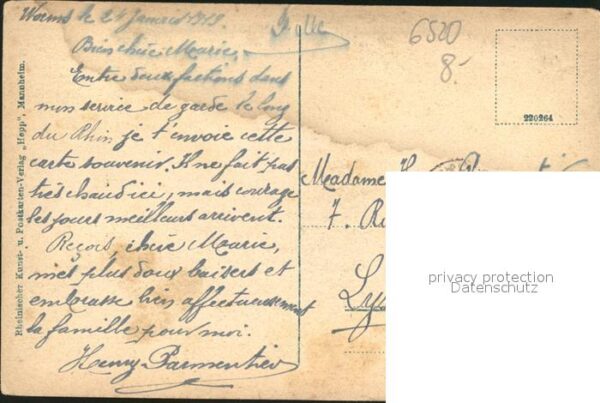 Worms le 24 Janvier 1919.
Bien chère Marie,
Entre deux factions dans
mon service de garde le long
du Rhin je t'envoie cette
carte souvenir. Il ne fait pas
très chaud ici, mais courage
les jours meilleurs arrivent.
Reçois, chère Marie,
mes plus doux baisers et
embrasse bien affectueusement
la famille pour moi.
Henry Parmentier
6520
8.-
220264
Madame H.
7. R
Ly
privacy protection
Datenschutz
Rheinischer Kunst- u. Postkarten-Verlag „Hepp", Mannheim.